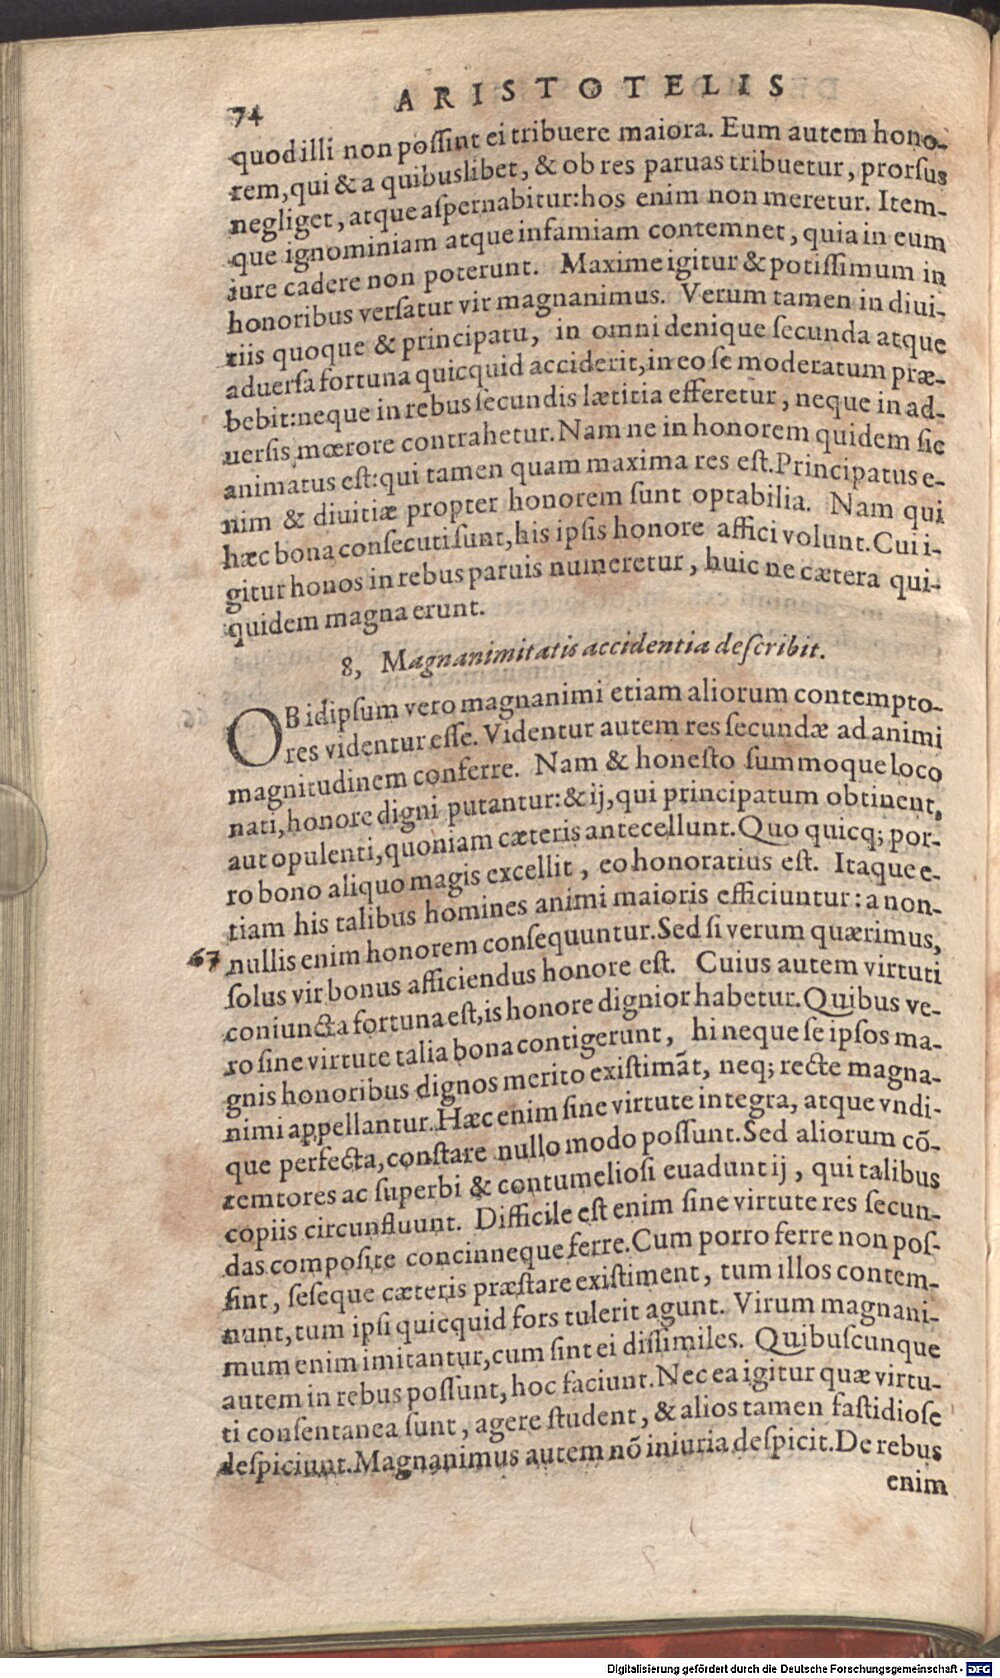 74 ARISTOTELIS
quod illi non poſſint ei tribuere maiora. Eum autem hono-
rem, qui & a quibuslibet, & ob res paruas tribuetur, prorſus
negliget, atque aſpernabitur: hos enim non meretur. Item-
que ignominiam atque infamiam contemnet, quia in eum
iure cadere non poterunt. Maxime igitur & potiſſimum in
honoribus verſatur vir magnanimus. Verum tamen in diui-
tiis quoque & principatu, in omni denique ſecunda atque
aduerſa fortuna quicquid acciderit, in eo ſe moderatum præ-
bebit: neque in rebus ſecundis lætitia efferetur, neque in ad-
uerſis mœrore contrahetur. Nam ne in honorem quidem ſic
animatus eſt: qui tamen quam maxima res eſt. Principatus e-
nim & diuitiæ propter honorem ſunt optabilia. Nam qui
hæc bona conſecuti ſunt, his ipſis honore affici volunt. Cui i-
gitur honos in rebus paruis numeretur, huic ne cætera qui-
quidem magna erunt.
8, Magnanimitatis accidentia deſcribit.
OB id ipſum vero magnanimi etiam aliorum contempto-
res videntur eſſe. Videntur autem res ſecundæ ad animi
magnitudinem conferre. Nam & honeſto ſummoque loco
nati, honore digni putantur: & ij, qui principatum obtinent,
aut opulenti, quoniam cæteris antecellunt. Quo quicq; por-
ro bono aliquo magis excellit, eo honoratius eſt. Itaque e-
tiam his talibus homines animi maioris efficiuntur: a non-
67 nullis enim honorem conſequuntur. Sed ſi verum quærimus,
ſolus vir bonus afficiendus honore eſt. Cuius autem virtuti
coniuncta fortuna eſt, is honore dignior habetur. Quibus ve-
ro ſine virtute talia bona contigerunt, hi neque ſe ipſos ma-
gnis honoribus dignos merito exiſtimāt, neq; recte magna-
nimi appellantur. Hæc enim ſine virtute integra, atque vndi-
que perfecta, conſtare nullo modo poſſunt. Sed aliorum cō-
temtores ac ſuperbi & contumelioſi euadunt ij, qui talibus
copiis circunfluunt. Difficile eſt enim ſine virtute res ſecun-
das compoſite concinneque ferre. Cum porro ferre non poſ-
ſint, ſeſeque cæteris præſtare exiſtiment, tum illos contem-
nunt, tum ipſi quicquid fors tulerit agunt. Virum magnani-
mum enim imitantur, cum ſint ei diſſimiles. Quibuſcunque
autem in rebus poſſunt, hoc faciunt. Nec ea igitur quæ virtu-
ti conſentanea ſunt, agere ſtudent, & alios tamen faſtidioſe
deſpiciunt. Magnanimus autem nō iniuria deſpicit. De rebus
enim
Digitalisierung gefördert durch die Deutsche Forschungsgemeinschaft - DFG